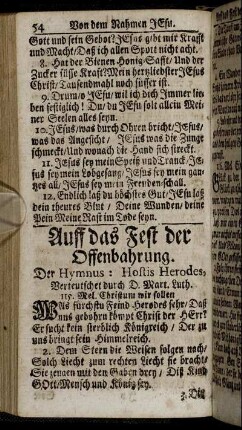 54 Von dem Nahmen JEsu.
Gott und sein Gebot! JEsus gibt mir Krafft
und Macht/ Daß ich allen Spott nicht acht.
8. Hat der Bienen Honig-Safft/ Und der
Zucker süsse Krafft? Mein hertzliebster JEsus
Christ/ Tausendmahl noch süsser ist.
9. Drum/ o JEsu/ wil ich dich Immer lie-
ben festiglich! Du/ du JEsu solt allein Mei-
ner Seelen alles seyn.
10. JEsus/ was durch Ohren bricht/ JEsus/
was das Angesicht/ JEsus was die Zunge
schmeckt/ Und wonach die Hand sich streckt.
11. JEsus sey mein Speiß und Tranck/ JE-
sus sey mein Lobgesang/ JEsus sey mein gan-
tzes all/ JEsus sey mein Freudenschall.
12. Endlich laß du höchstes Gut/ JEsu laß
dein theures Blut/ Deine Wunden/ deine
Pein Meine Rast im Tode seyn.
Auff das Fest der
Offenbahrung.
Der Hymnus: Hostis Herodes,
Verteutschet durch D. Mart. Luth.
115. Mel. Christum wir sollen
WAs fürchstu Feind Herodes sehr/ Daß
uns gebohrn kömpt Christ der HErr?
Er sucht kein sterblich Königreich/ Der zu
uns bringt sein Himmelreich.
2. Dem Stern die Weisen folgen nach/
Solch Liecht zum rechten Liecht sie bracht/
Sie zeigen mit den Gaben drey/ Diß Kind
GOtt/ Mensch und König sey.
3. Die